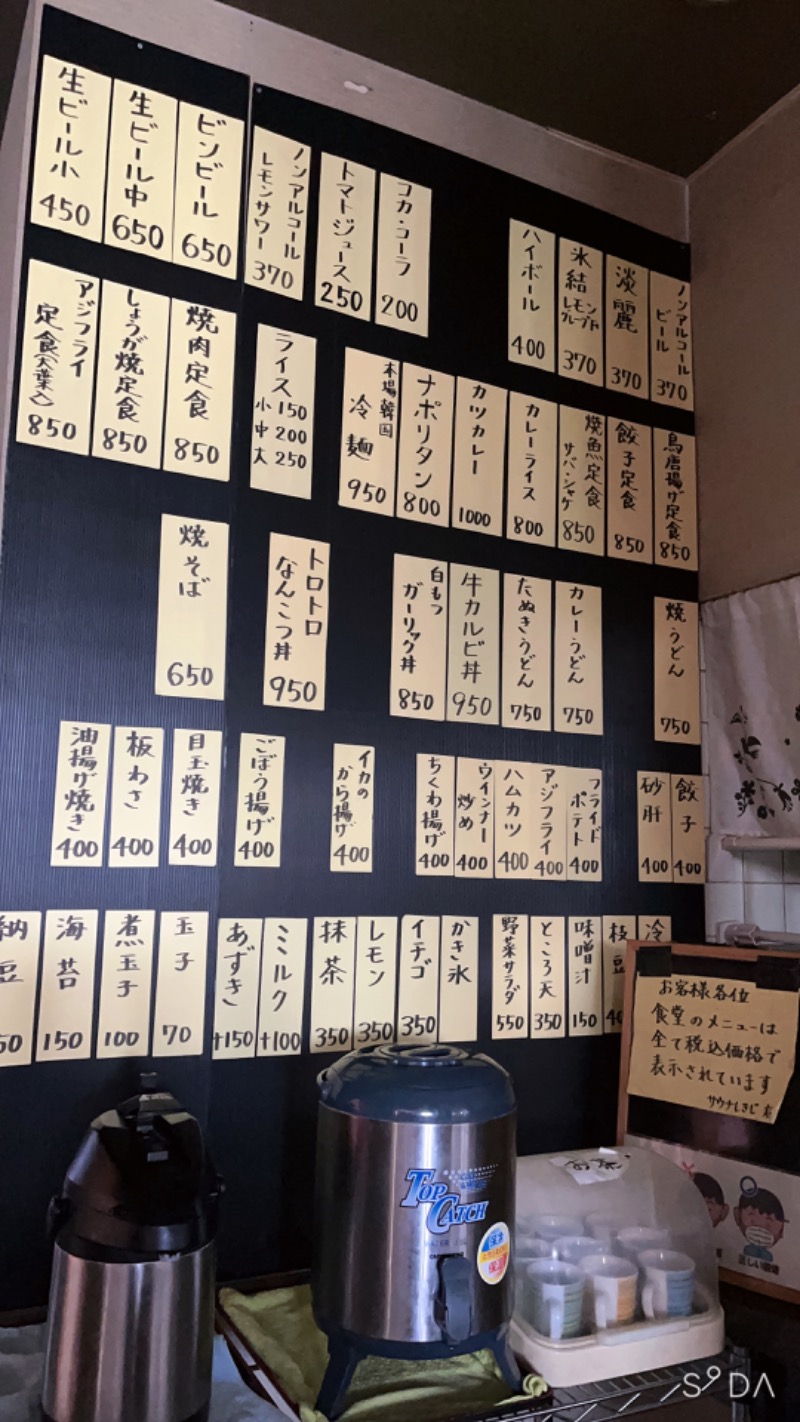 生ビール小
450
生ビール中
650
ビンビール
650
ノンアルコール
レモンサワー
370
トマトジュース
250
コカ・コーラ
200
ハイボール
400
氷結
レモン
370
淡麗
370
ノンアルコール
ビール
370
アジフライ
定食(大葉入)
850
しょうが焼定食
850
焼肉定食
850
ライス
小 150
中 200
大 250
本場韓国
冷麺
950
ナポリタン
800
カツカレー
1000
カレーライス
800
焼魚定食
サバ・シャケ
850
餃子定食
850
鳥唐揚げ定食
850
焼そば
650
トロトロ
なんこつ丼
950
白もつ
ガーリック丼
850
牛カルビ丼
950
たぬきうどん
750
カレーうどん
750
焼うどん
750
油揚げ焼き
400
板わさ
400
目玉焼き
400
ごぼう揚げ
400
イカの
から揚げ
400
ちくわ揚げ
400
ウインナー
炒め
400
ハムカツ
400
アジフライ
400
フライド
ポテト
400
砂肝
400
餃子
400
納豆
50
海苔
150
煮玉子
100
玉子
70
あずき
+150
ミルク
+100
抹茶
350
レモン
350
イチゴ
350
かき氷
野菜サラダ
550
ところ天
350
味噌汁
150
枝豆
40
冷
お客様各位
食堂のメニューは
全て税込価格で
表示されています
サウナしきじ 店
TOP
CATCH
SODA